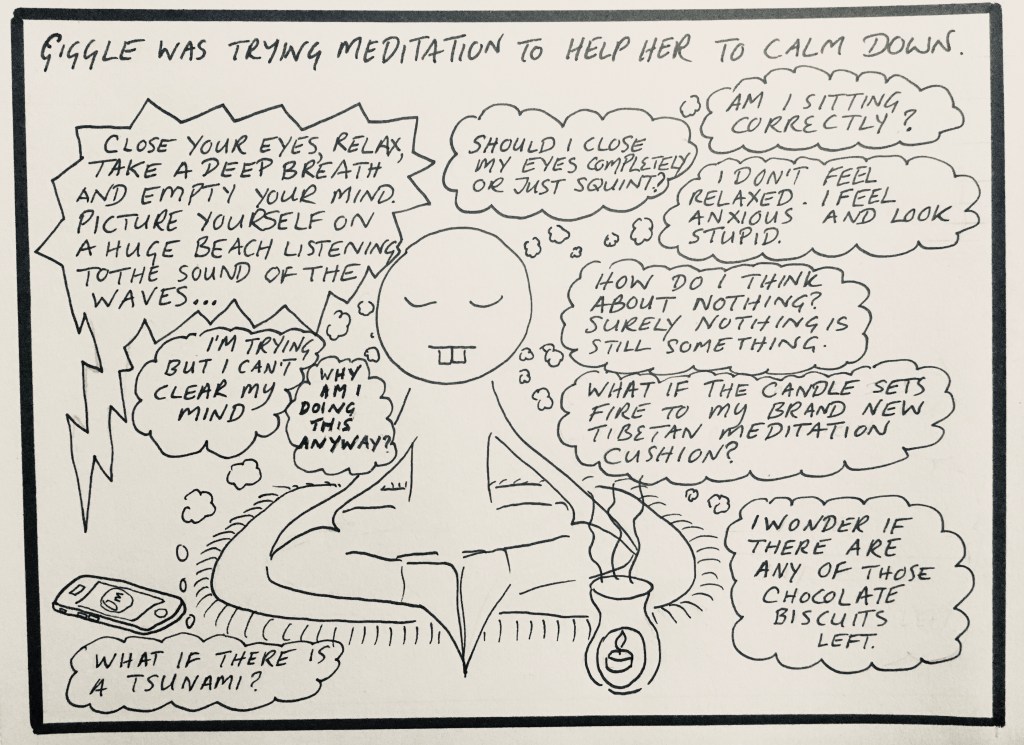 GIGGLE WAS TRYING MEDITATION TO HELP HER TO CALM DOWN.
CLOSE YOUR EYES, RELAX,
TAKE A DEEP BREATH
AND EMPTY YOUR MIND.
PICTURE YOURSELF ON
A HUGE BEACH LISTENING
TO THE SOUND OF THEN
WAVES...
SHOULD I CLOSE
MY EYES COMPLETELY
OR JUST SQUINT?
AM I SITTING
CORRECTLY?
I DON'T FEEL
RELAXED. I FEEL
ANXIOUS AND LOOK
STUPID.
HOW DO I THINK
ABOUT NOTHING?
SURELY NOTHING IS
STILL SOMETHING.
I'M TRYING
BUT I CAN'T
CLEAR MY
MIND
WHY
AM I
DOING
THIS
ANYWAY?
WHAT IF THE CANDLE SETS
FIRE TO MY BRAND NEW
TIBETAN MEDITATION
CUSHION?
I WONDER IF
THERE ARE
ANY OF THOSE
CHOCOLATE
BISCUITS
LEFT.
WHAT IF THERE IS
A TSUNAMI?